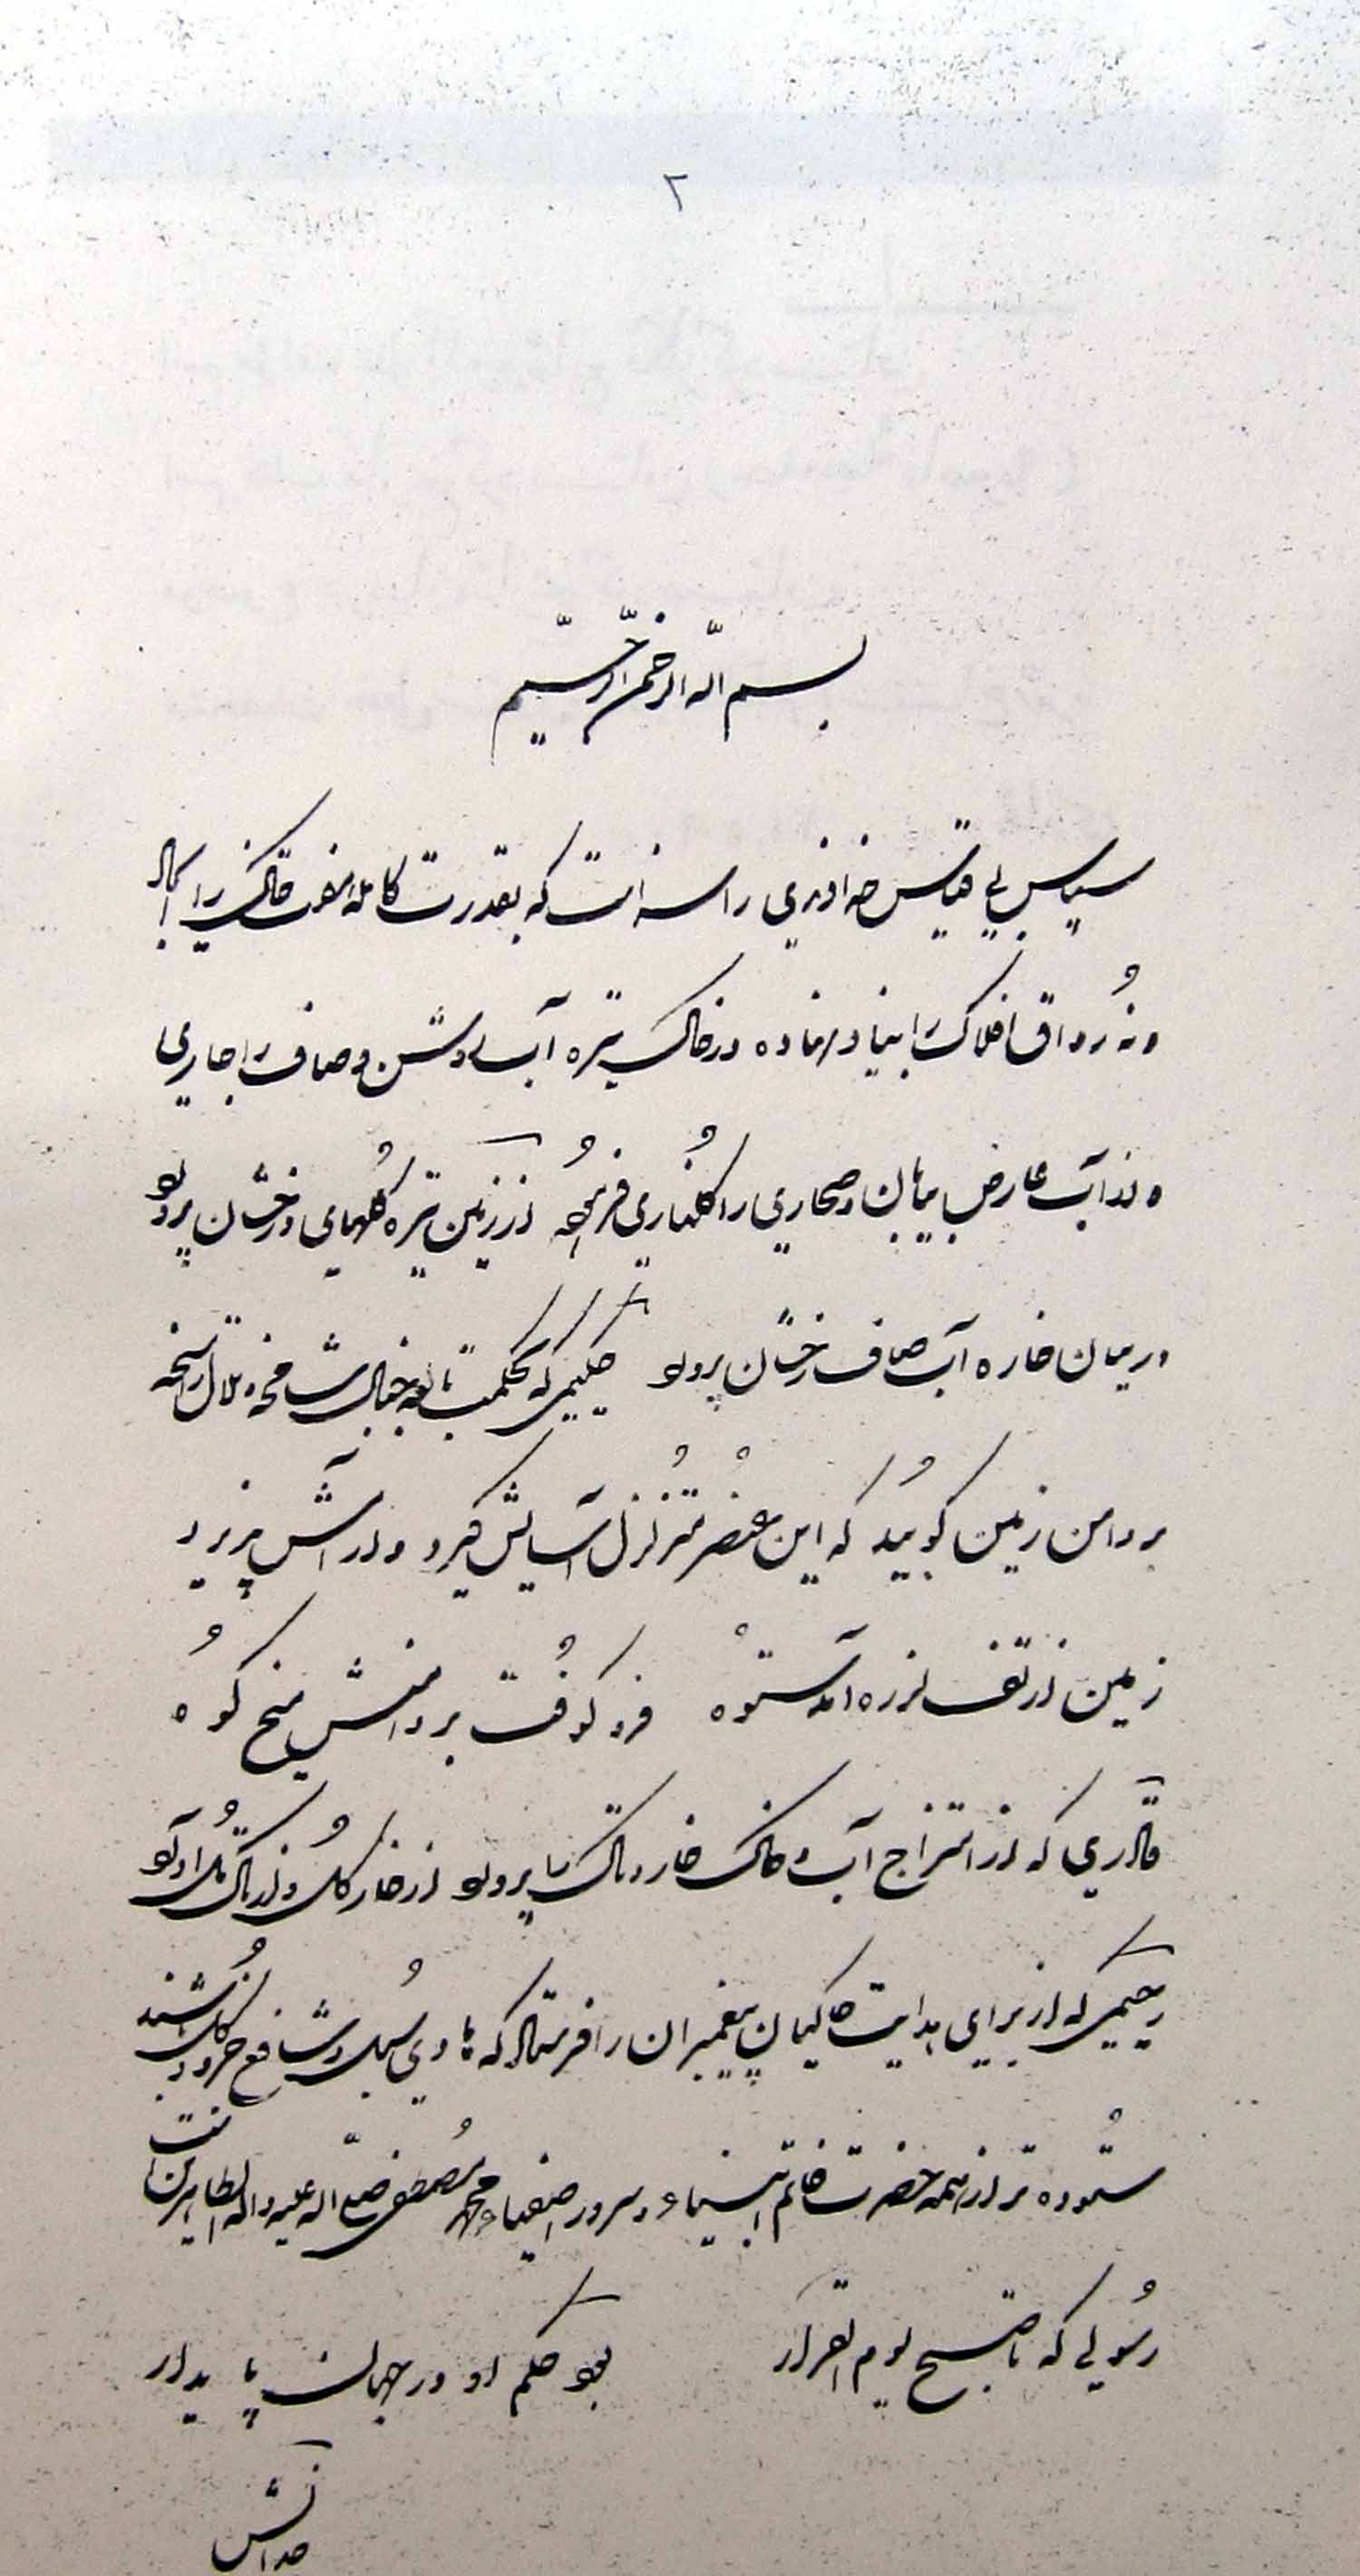 ۲
بسم الله الرحمن الرحیم
سپاس بی قیاس خداوندی را سزاست که بقدرت کامله هفت خاک را
و نه رواق افلاک را بنیاد نهاده در خاک تیره آب روشن و صاف را جاری
و از آب عارض بیابان و صحاری را گلناری فرموده از زمین تیره گلهای درخشان پرورد
در میان خاره آب صاف رخشان پرورد حکیمی که بحکمت بالغه جبال شامخه و تلال راسخه
بر دامن زمین کوبید که این عنصر متزلزل آسایش گیرد و آرامش پذیرد
زمین از تف لرزه آمد ستوه فرو کوفت بر دامنش میخ کوه
قادری که از امتزاج آب و خاک خار و تاک پرورد از خار گل و از تاک مل آورد
رحیمی که از برای هدایت خاکیان پیغمبران را فرستاد که هادی سبل و شافع جزو و کل باشند
ستوده تر از همه حضرت خاتم انبیاء و سرور اصفیاء محمد مصطفی صلی الله علیه و اله الطاهرین است
رسولی که تا صبح یوم القرار بود حکم او در جهان پایدار